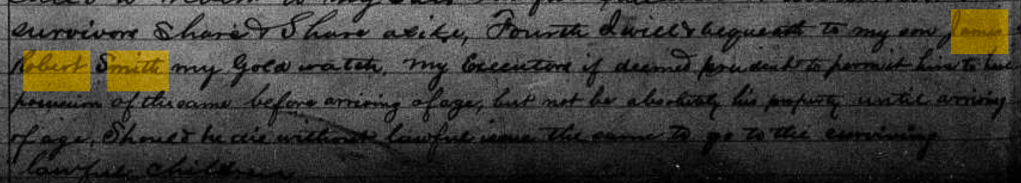 survivors Share & Share alike, Fourth I will & bequeath to my son James
Robert Smith my Gold watch, my Executors if deemed prudent to permit him to have
possession of the same before arriving of age, but not be absolutely his property until arriving
of age, Should he die without lawful issue the same to go to the surviving
lawful children